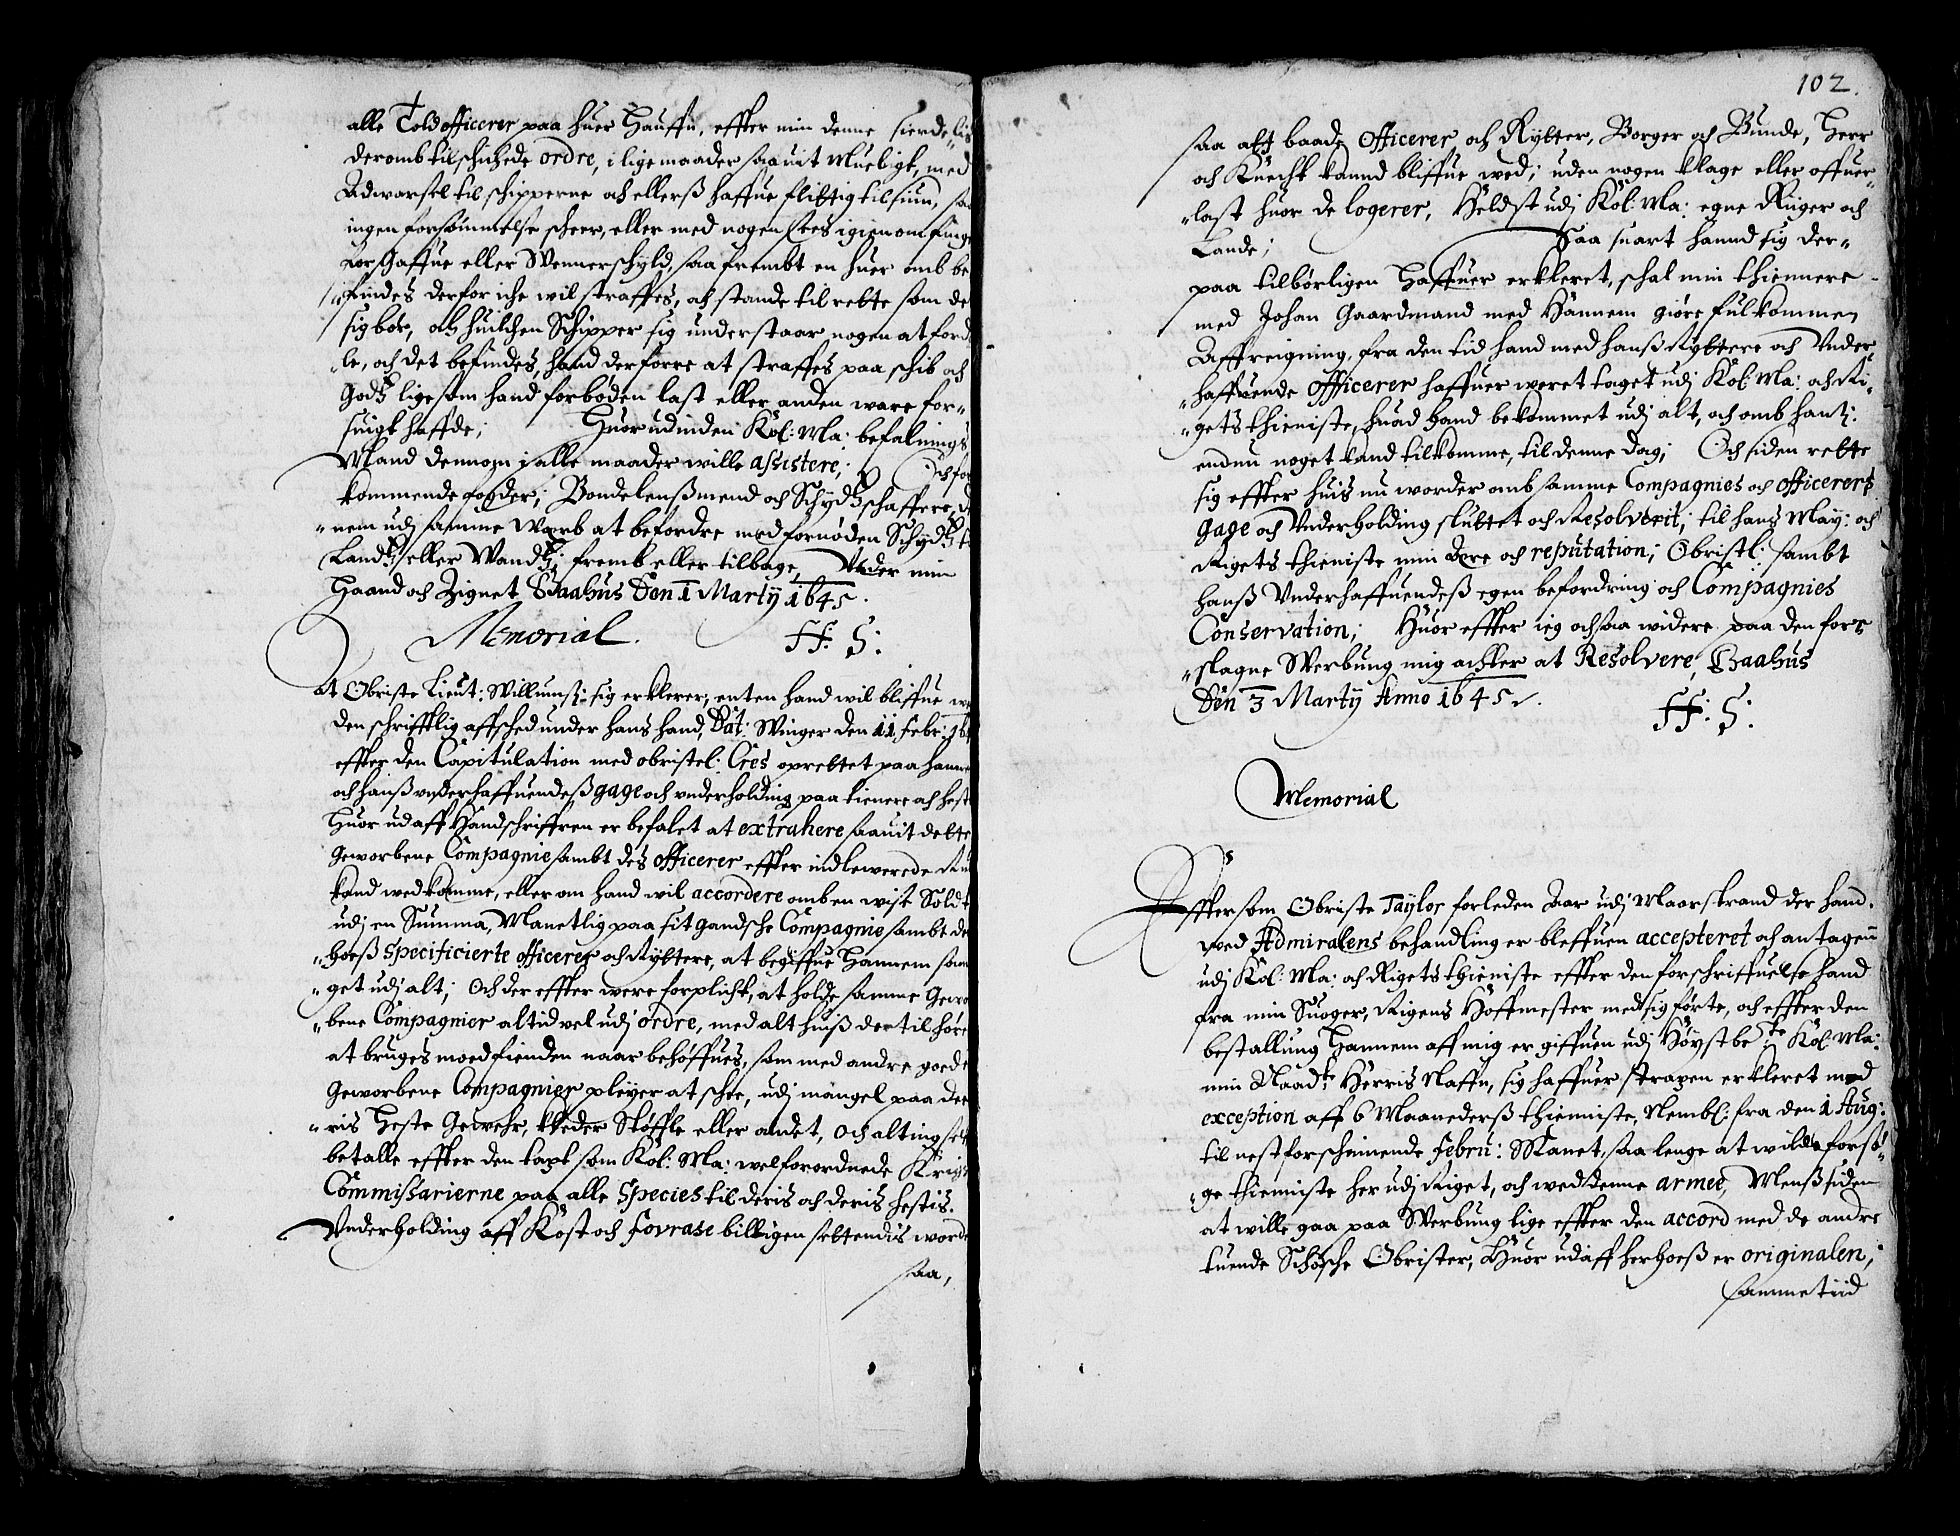 alle Toldofficerer paa huer Hauffn, effter min denne sierdelis
deromb tilschichede ordre, i lige maader saauit Mueligt, med
Adwarsel til schipperne och ellerß haffue flittig tilsiun, saa
ingen forsømmelse scheer, eller med nogen sees igienom finger
for Gaffue eller Wennerschyld, saa frembt en huer omb be
„findes derfor iche wil straffes, och stande til rette som de
sig bør, och huilchen Schipper sig understaar nogen at ford
„le, och det befindes, hand derforre at straffes paa schib och
Godtz lige som hand forbøden last eller anden ware for„
suigt haffde; Huor udinden Kol: Ma: befalnings
Mand dennom i alle maader wille assistere; Och for
kommende fogder; Bondelenßmend och Schydtzschaffere, de
„nem udj samme Werb at befordre med fornøden Schydtz t
Landtz eller Wandtz; frem eller tilbage, Under min
Haand och Zignet Baahus Den 1 Martij 1645.
Memorial. H: S:
At Obriste Lieut: Willumß: sig erklerer, enten hand wil bliffue we
den schrifftlig affsched under hans hand, Dat: Winger den 11 febr: 164
effter den Capitulation med obristel: Cres oprettet paa hanne
och hanß underhaffuendeß gage och underholding paa tienere och heste
Huor udaff Handschrifften er befalet at extrahere saauit dette
Geworbene Compagnie sambt des officerer effter indlewerede Ru
kand wedkomme, eller om hand wil accordere omb en wist Soldt
udj en Summa, Manetlig paa sit gandsche Compagnie sambt de
„hoeß specificierte officerer och Ryttere, at begiffue Hannem saa
„get udj alt; Och der effter were forplicht, at holde samme Gewo
„bene Compagnier altid vel udj ordre, med alt huiß der til høre
at bruges moed fienden naar behøffues, som med andre goede
Geworbene Compagnier pleyer at schee, udj mangel paa de
„ris Heste Gewehr, kleder Støffle eller andet, och alting self
betalle effter den taxt som Kol: Ma: welforordnede Krigs
Commissarierne paa alle Species til deris och deris hestis.
Underholding aff Kost och fovrase billigen settendis worde
saa,
102.
saa att baade officerer och Rytter, Borger och Bunde, Herr
och Knecht kannd bliffue wed; uden nogen klage eller offuer„
„last huor de logerer, Heldst udj Kol: Ma: egne Riiger och
Lande; Saa snart hannd sig der„
paa tilbørligen Haffuer erkleret, schal min thiennere
med Johan Gaardmand med Hannem giøre fulkommen
Affreigning, fra den tid hand med hanß Ryttere och Under
„haffuende officerer haffuer weret taget udj Kol: Ma: och Ri„
„gets thieniste, huad hand bekommet udj alt, och omb hanß:
endnu noget kand tilkomme, til denne dag; Och siden rette
sig effter huis nu worder omb samme Compagnies och officerers
gage och Underholding sluttet och Resolverit; til hans May: och
Rigets thieniste min Ære och reputation; Obristl: sambt
hanß Underhaffuendeß egen befordring och Compagnies
Conservation; Huor effter ieg ochsaa widere paa den fore
„slagne Werbung mig achter at Resolvere, Baahus
Den 3 Martij Anno 1645.
H: S:
Memorial
Effter som Obriste Taylor forleden Aar udj Maarstrand der hand.
wed Admiralens behandling er bleffuen accepteret och antagen
udj Kol: Ma: och Rigets thieniste effter den forschriffuelse hand
fra min Suoger, Rigens Hoffmester med sig førte, och effter den
bestallung Hannem aff mig er giffuen udj Høystbete: Kol: Ma:
min Naadte Herris Naffn, sig haffuer strapen erkleret med
exception aff 6 Maanederß thienniste, Nembl: fra den 1 Aug:
til nest forscheinende febru: Manet, saa lenge at wille forsø„
„ge thienniste her udj Riget, och wed denne armee, Menß siden
at wille gaa paa Werbung lige effter den accord med de andre
tuende Schotsche Obrister, Huor udaff herhoeß er originalen,
samme tiid